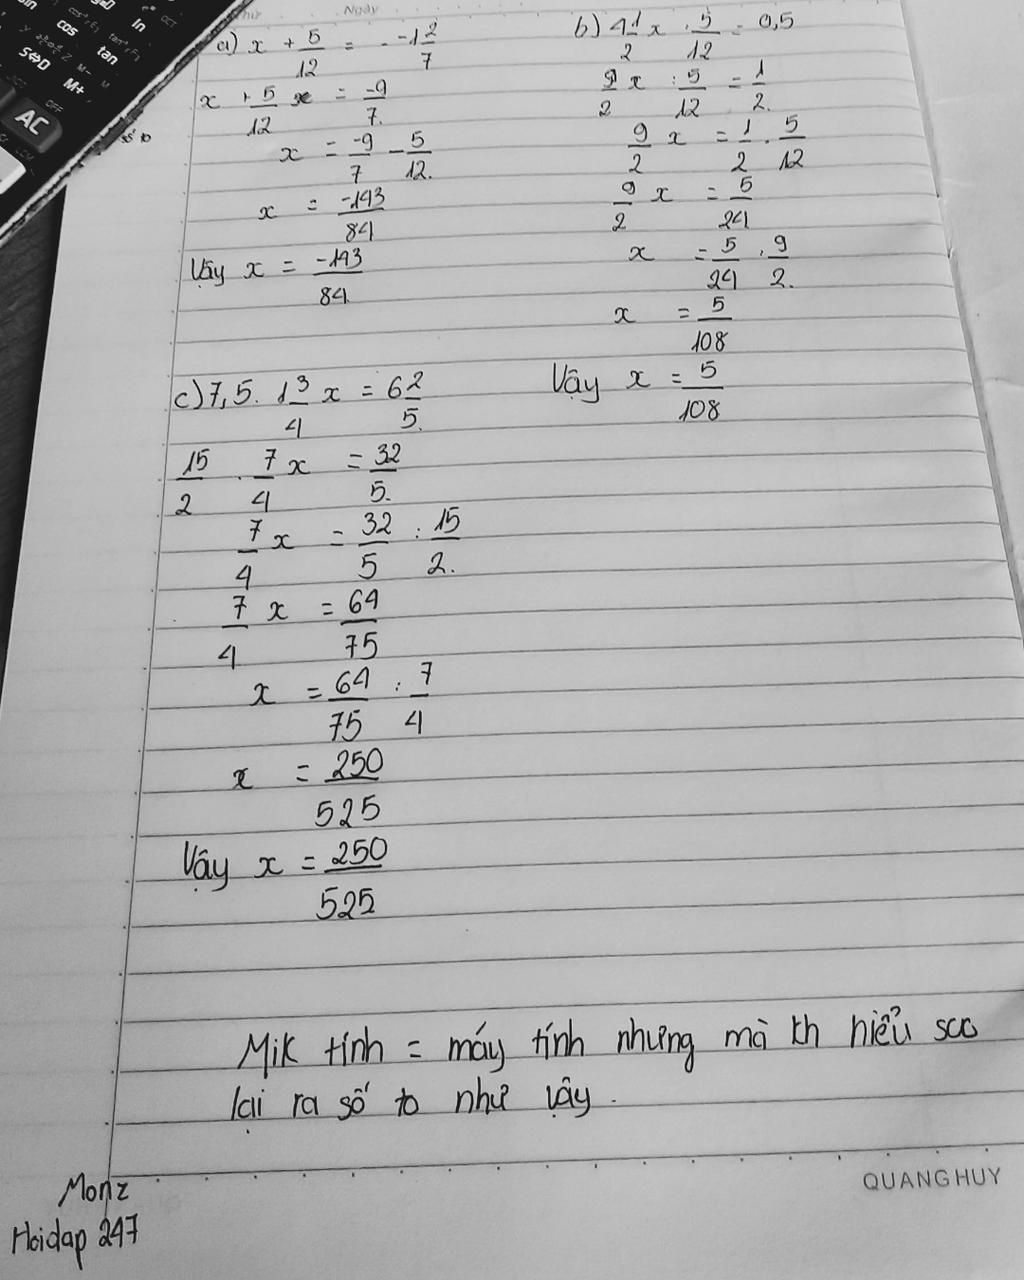 Ngày
a) x + 5/12 = -1 2/7
x + 5/12 = -9/7
x = -9/7 - 5/12
x = -143/84
Vậy x = -143/84
b) 4 1/2 x : 5/12 = 0,5
9/2 x : 5/12 = 1/2
9/2 x = 1/2 . 5/12
9/2 x = 5/24
x = 5/24 : 9/2
x = 5/108
Vậy x = 5/108
c) 7,5 . 1 3/4 x = 6 2/5
15/2 . 7/4 x = 32/5
7/4 x = 32/5 : 15/2
7/4 x = 64/75
x = 64/75 : 7/4
x = 250/525
Vậy x = 250/525
Mik tính = máy tính nhưng mà kh hiểu sao
lại ra số to như vậy.
QUANG HUY
Monz
Hoidap 247
cos
tan
ln
S⇔D
M+
AC